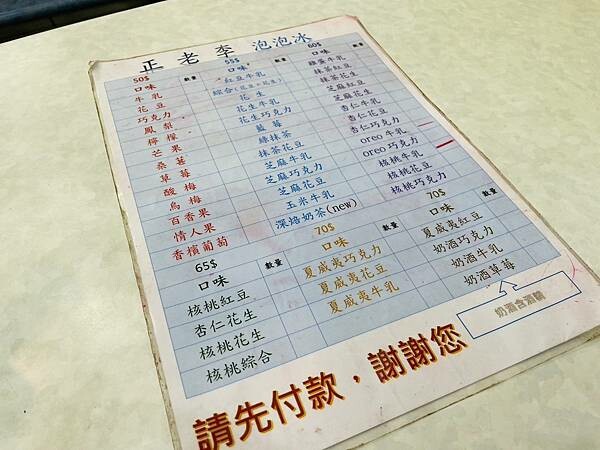 正老李泡泡冰
50$
口味 數量
牛乳
花豆
巧克力
鳳梨
檸檬
芒果
桑葚
草莓
酸梅
烏梅
百香果
情人果
香檳葡萄
55$
口味 數量
紅豆牛乳
綜合(花豆+花生)
花生
花生牛乳
花生巧克力
藍莓
綠抹茶
抹茶花豆
芝麻牛乳
芝麻巧克力
芝麻花豆
玉米牛乳
深焙奶茶(new)
60$
口味 數量
雞蛋牛乳
抹茶紅豆
抹茶花生
芝麻紅豆
芝麻花生
杏仁牛乳
杏仁花豆
oreo 牛乳
oreo 巧克力
核桃牛乳
核桃花豆
核桃巧克力
65$
口味 數量
核桃紅豆
杏仁花生
核桃花生
核桃綜合
70$
口味 數量
夏威夷巧克力
夏威夷花豆
夏威夷牛乳
70$
口味 數量
夏威夷紅豆
奶酒巧克力
奶酒牛乳
奶酒草莓
奶酒含酒精
請先付款,謝謝您